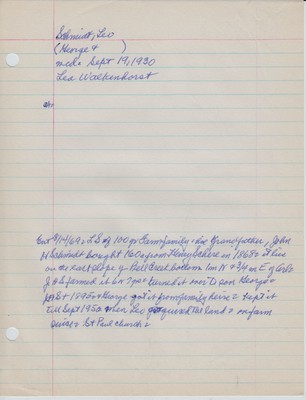 Schmidt, Leo
(George &        )
md. Sept 19, 1930
Lea Walkenhorst
Ent 9/14/69 LS of 100 yr Farm family & his Grandfather, John
H Schmidt bought 160 a from Henry in 1868 lies
on the east slope of Bell Creek bottom 1m N & 3/4 m E of
J H S farmed it 6 or 7 yrs turned it over to son George
1895 & George got it from family heirs & kept it
till Sept 1952 when Leo acquired the land & on farm
since & St Paul church